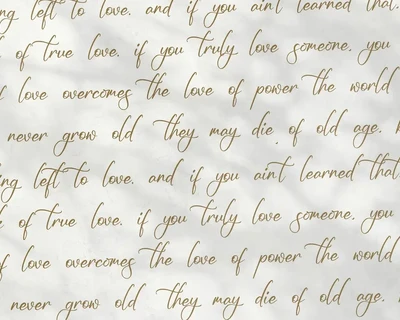 ng left to love. and if you ain't learned that.
of true love. if you truly love someone. you
f love overcomes the love of power the world
never grow old they may die of old age.
ing left to love. and if you ain't learned that.
of true love. if you truly love someone. you
f love overcomes the love of power the world
never grow old they may die of old age.